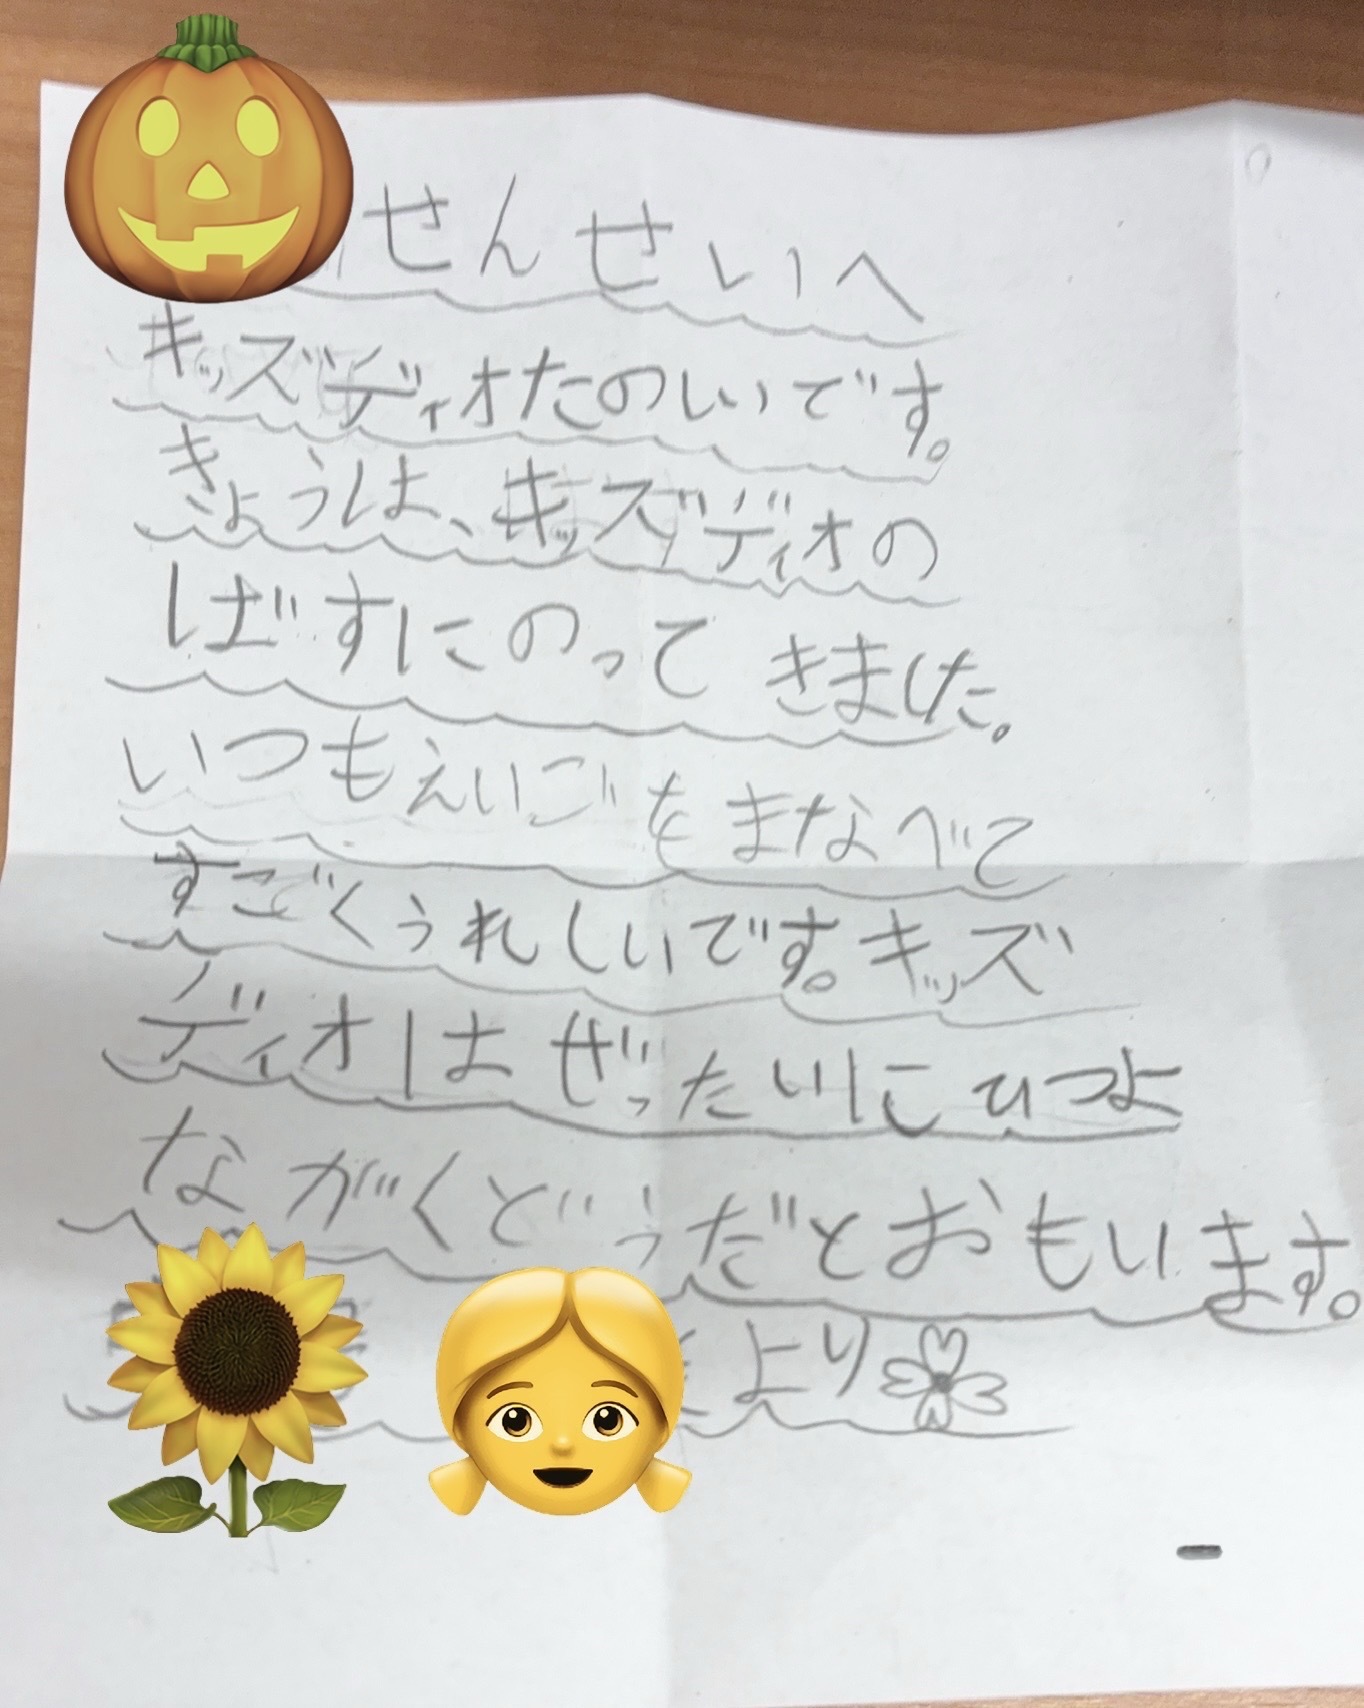 せんせいへ
キッズディオたのしいです。
きょうは、キッズディオの
ばすにのってきました。
いつもえいごをまなべて
すごくうれしいです。キッズ
ディオはぜったいにひつよ
ながくどうだとおもいます。
より